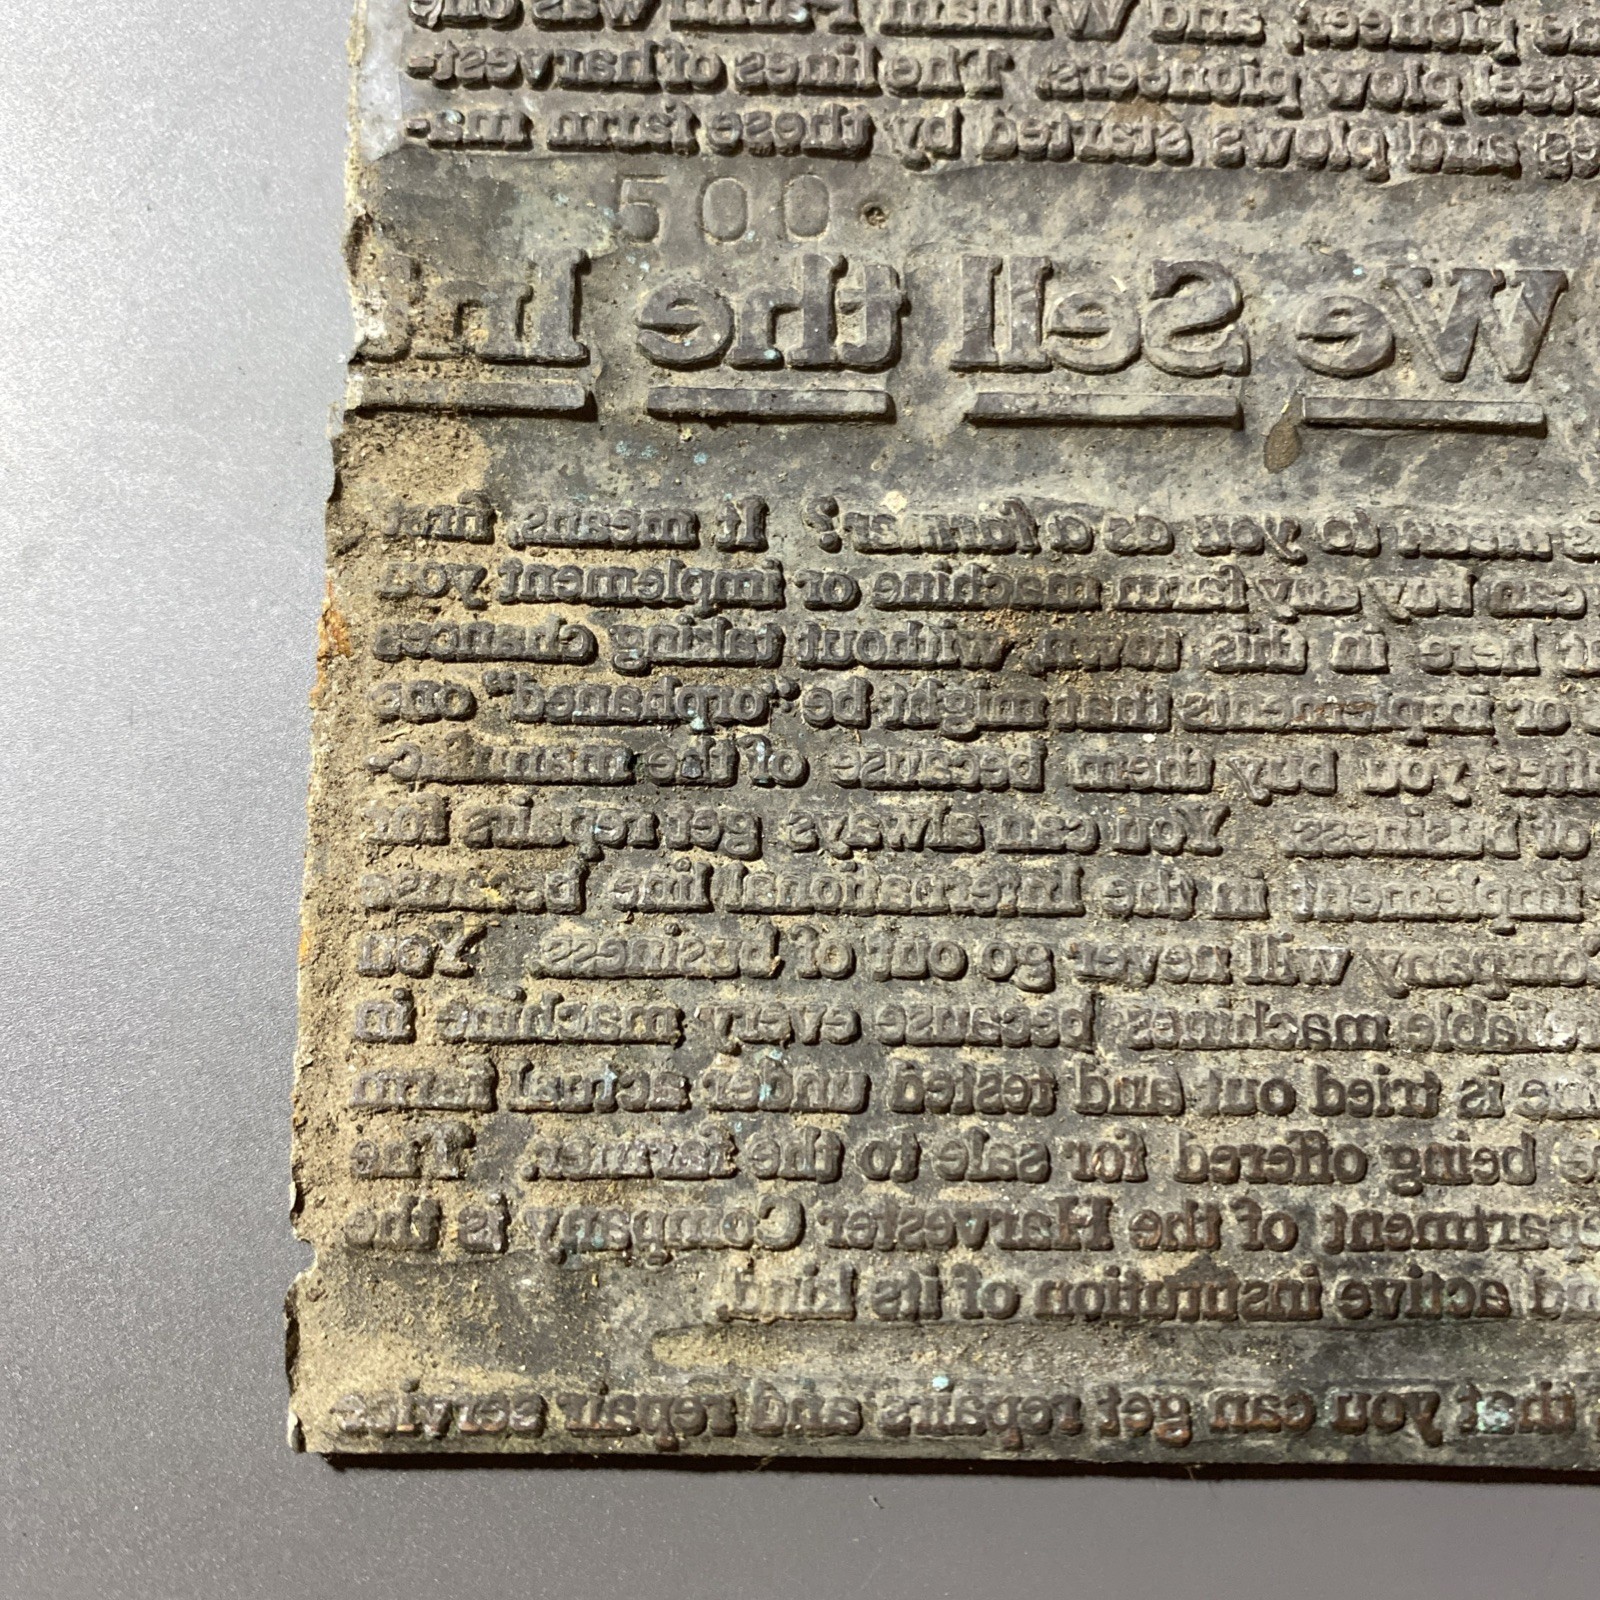 ne pioneer, and William Parlin was one
steel plow pioneers. The lines of harvest-
es and plows started by these farm ma-
500
We Sell the Int
is mean to you as a farmer? It means, first
can buy any farm machine or implement you
here in this town, without taking chances
or implements that might be "orphaned" one
after you buy them because of the manufac-
of business. You can always get repairs for
implement in the International line because
Company will never go out of business. You
machines because every machine in
ine is tried out and tested under actual farm
being offered for sale to the farmer. The
epartment of the Harvester Company is the
nd active institution of its kind.
that you can get repairs and repair service